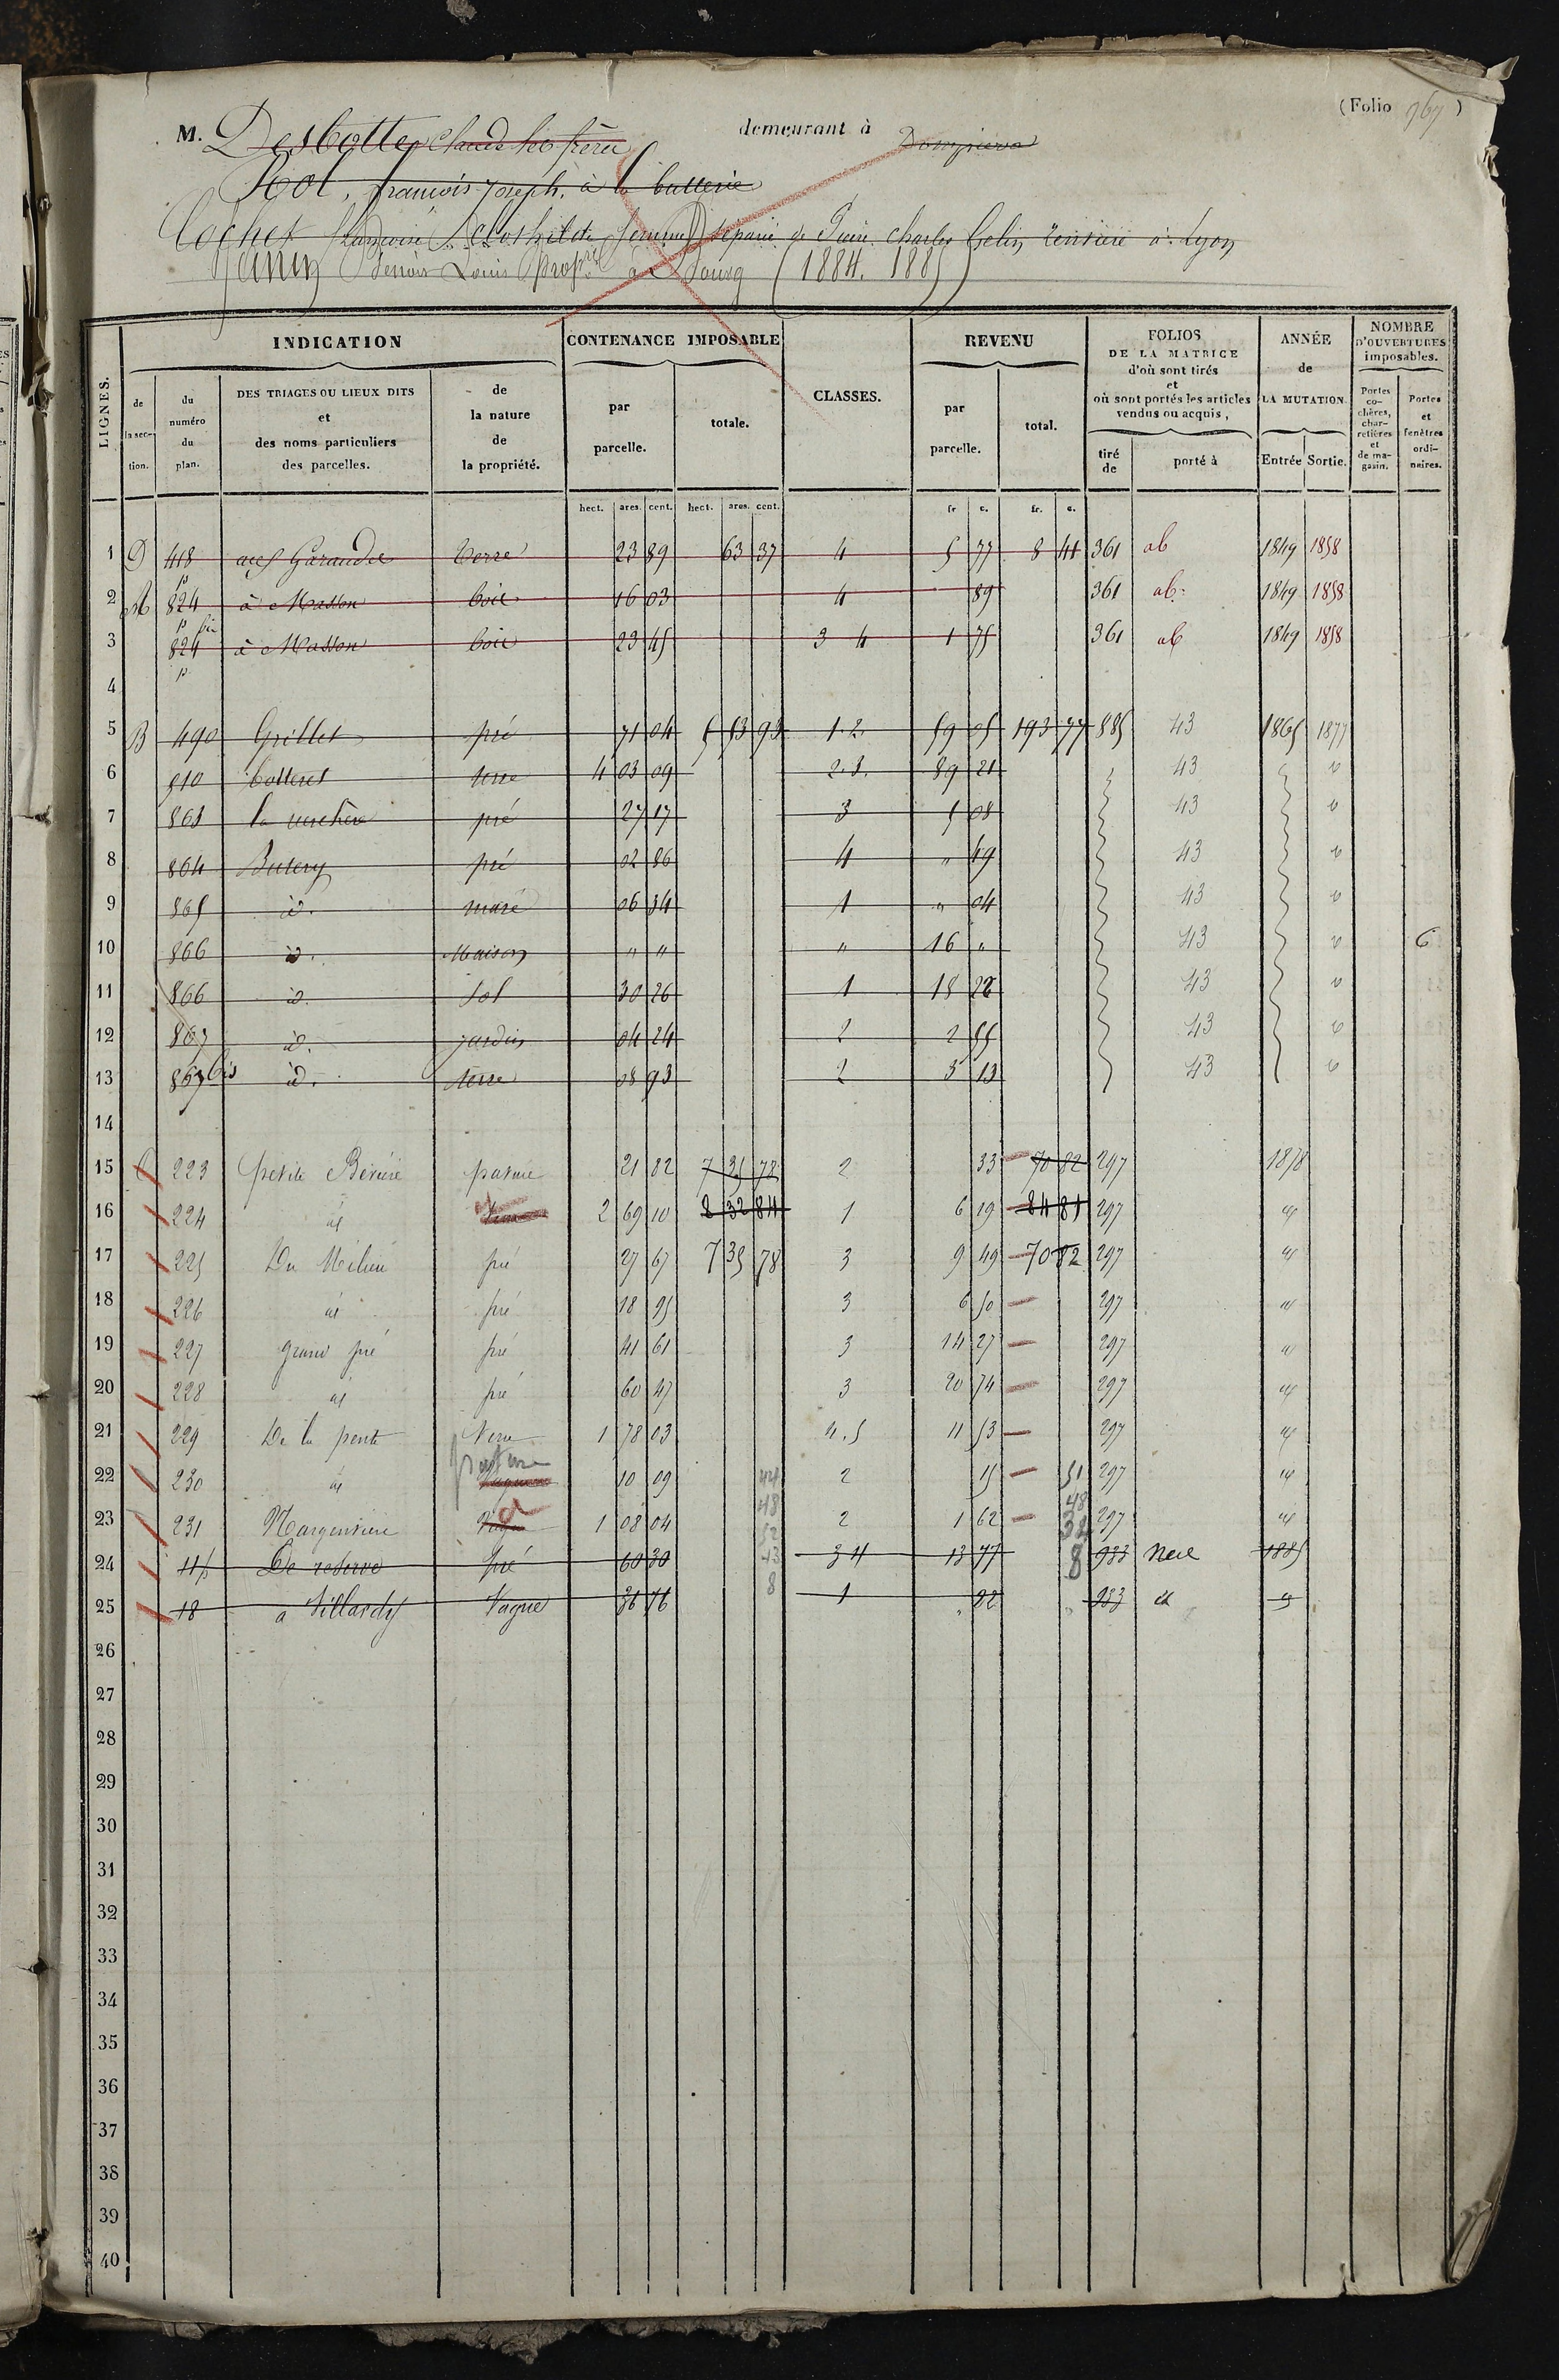 (Folio 967)
M. Desbottes Claude les frères demeurant à Dompierre
Rol, françois joseph, à la butterie
Cochet françoise Clothilde femme séparée de Pierre Charles Gelin, rentière à Lyon
Benoit Louis propre à Bourg (1884. 1885)
LIGNES. INDICATION CONTENANCE IMPOSABLE CLASSES. REVENU FOLIOS DE LA MATRICE d'où sont tirés et où sont portés les articles vendus ou acquis, ANNÉE de LA MUTATION. NOMBRE D'OUVERTURES imposables.
de la section. du numéro du plan. DES TRIAGES OU LIEUX DITS et des noms particuliers des parcelles. de la nature de la propriété. par parcelle. totale. par parcelle. total. tiré de porté à Entrée Sortie. Portes cochères, charretières et de magasin. Portes et fenêtres ordinaires.
hect. ares. cent. hect. ares. cent. fr. c. fr. c.
1 D 418 aux Garaudes terre 23 89 63 37 4 5 77 8 41 361 ab 1849 1858
2 A 824 p à Masson bois 16 03 4 89 361 ab. 1849 1858
3 824 p à Masson bois 23 45 3 4 1 75 361 ab 1849 1858
4
5 B 490 Grillet pré 71 04 5 53 93 1.2. 59 05 193 77 885 43 1865 1877
6 510 Botteret terre 4 03 09 2.3. 89 21 43
7 863 la verchère pré 27 17 3 5 08 43
8 864 Butery pré 02 86 4 " 49 43
9 865 id. mare 06 34 1 " 04 43
10 866 id. Maison " " " 16 " 43 6
11 866 id. Sol 30 26 1 18 28 43
12 867 id. jardin 04 24 2 2 55 43
13 867 bis id. terre 08 93 2 3 13 43
14
15 C 223 petite pature 21 82 7 35 78 2 33 70 82 297 1878
16 224 id 2 69 10 8 32 84 1 6 19 84 81 297 id
17 225 Du Milieu pré 27 67 7 35 78 3 9 49 70 82 297 id
18 226 id pré 18 95 3 6 50 297 id
19 227 grand pré pré 41 61 3 14 27 297 id
20 228 id pré 60 47 3 20 74 297 id
21 229 De la pente Terre 1 78 03 4.5 11 53 297 id
22 230 id pature 10 09 44 2 15 51 297 id
23 231 1 08 04 48 52 2 1 62 48 38 297 id
24 11p De reserve pré 60 30 43 3 4 13 77 8 933 1885
25 18 a Villardy Vague 36 76 8 1 " 22 933 id
26
27
28
29
30
31
32
33
34
35
36
37
38
39
40